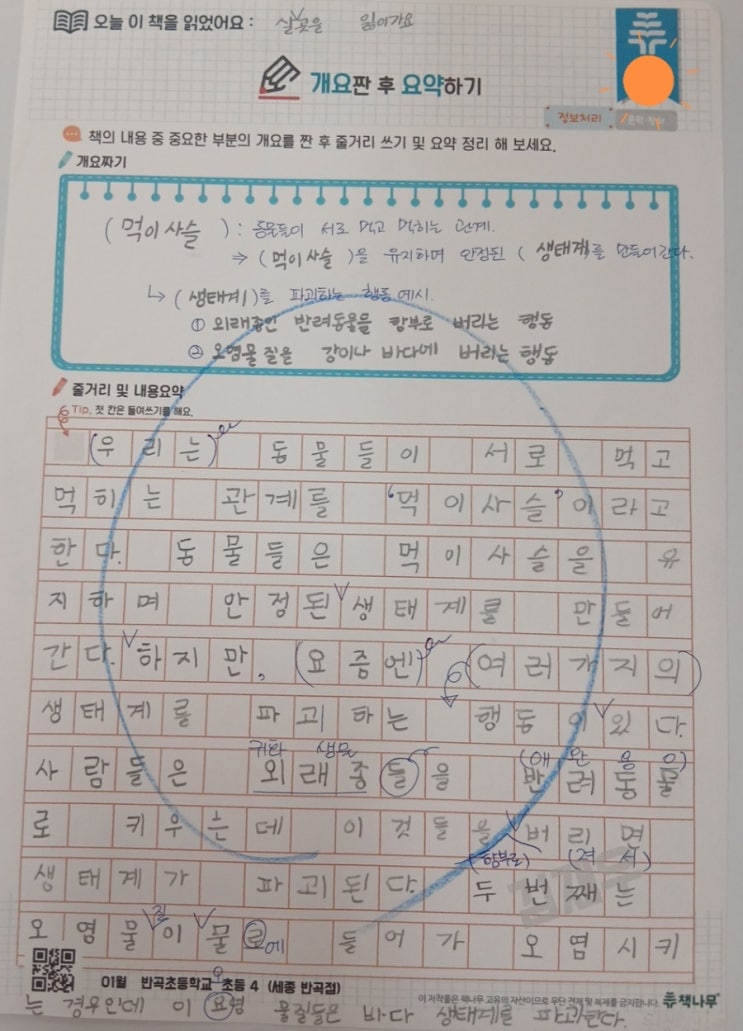 오늘 이 책을 읽었어요 : 살곳을 잃어가요
개요짠 후 요약하기
정보처리
책의 내용 중 중요한 부분의 개요를 짠 후 줄거리 쓰기 및 요약 정리 해 보세요.
개요짜기
(먹이사슬) : 동물들이 서로 먹고 먹히는 관계.
⇒ (먹이사슬)을 유지하며 안정된 (생태계)를 만들어간다.
↳ (생태계)를 파괴하는 행동 예시.
① 외래종인 반려동물을 함부로 버리는 행동
② 오염물질을 강이나 바다에 버리는 행동
줄거리 및 내용요약
Tip. 첫 칸은 들여쓰기를 해요.
(우리는) 동물들이 서로 먹고
먹히는 관계를 '먹이사슬'이라고
한다. 동물들은 먹이사슬을 유
지하며 안정된 생태계를 만들어
간다. 하지만, (요즘엔) (여러가지의)
생태계를 파괴하는 행동이 있다.
귀화 생물 (애완용으)
사람들은 외래종들을 반려동물
로 키우는데 이것들을 버리면
(함부로) (져서)
생태계가 파괴된다. 두번째는
질
오영물이 물로에 들어가 오염시키
01월 반곡초등학교 초등 4 (세종 반곡점)
이 저작물은 책나무 고유의 자산이므로 무단 전재 및 복제를 금지합니다. 책나무
는 경우인데 이 요영 물질들은 바다 생태계를 파괴한다.